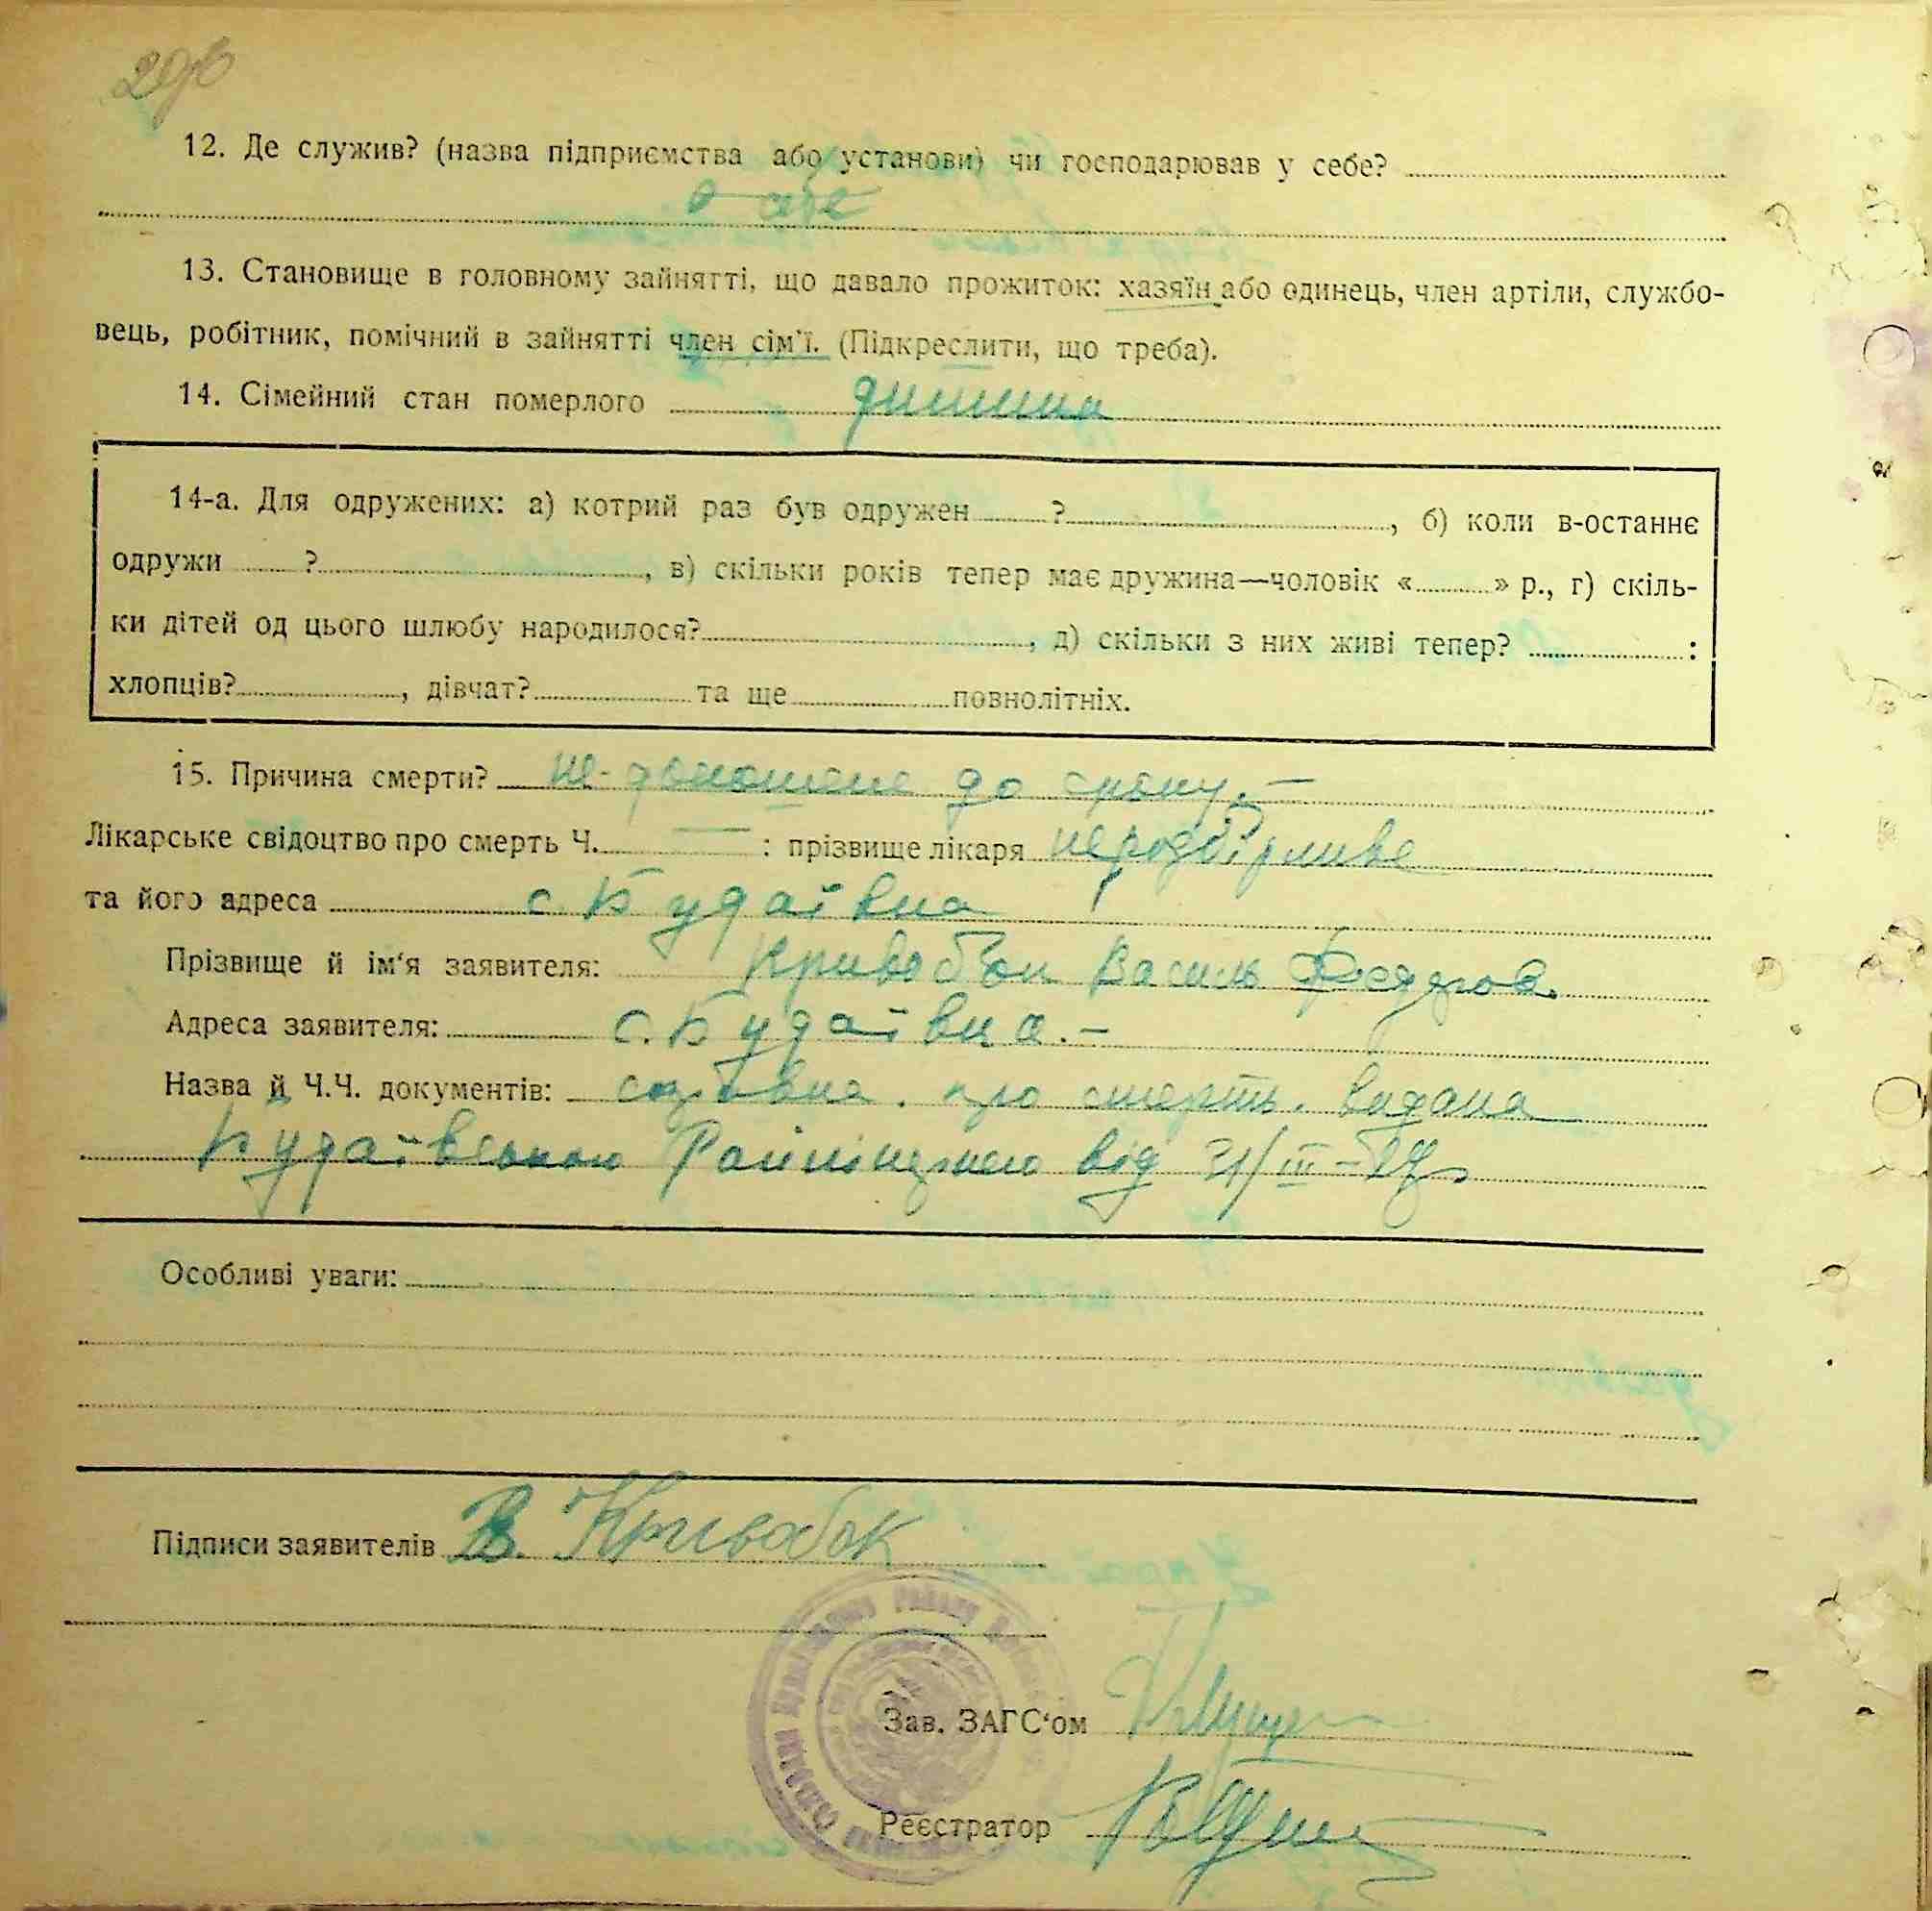 12. Де служив? (назва підприємства або установи) чи господарював у себе?
в себе
13. Становище в головному зайнятті, що давало прожиток: хазяїн або одинець, член артіли, службо-
вець, робітник, помічний в зайнятті член сім'ї. (Підкреслити, що треба).
14. Сімейний стан померлого дитина
14-а. Для одружених: а) котрий раз був одружен ? , б) коли в-останнє
одружи ? , в) скільки років тепер має дружина—чоловік « » р., г) скіль-
ки дітей од цього шлюбу народилося? , д) скільки з них живі тепер? :
хлопців? , дівчат? та ще повнолітніх.
15. Причина смерти? не-доношене до сроку. —
Лікарське свідоцтво про смерть Ч. — : прізвище лікаря нерозбірливе
та його адреса с. Будаївка
Прізвище й ім'я заявителя: Василь Федоров.
Адреса заявителя: с. Будаївка. —
Назва й Ч.Ч. документів: про смерть. видана
Будаївською від 31/III–
Особливі уваги:
Підписи заявителів В. Кривобок
Зав. ЗАГС'ом
Реєстратор